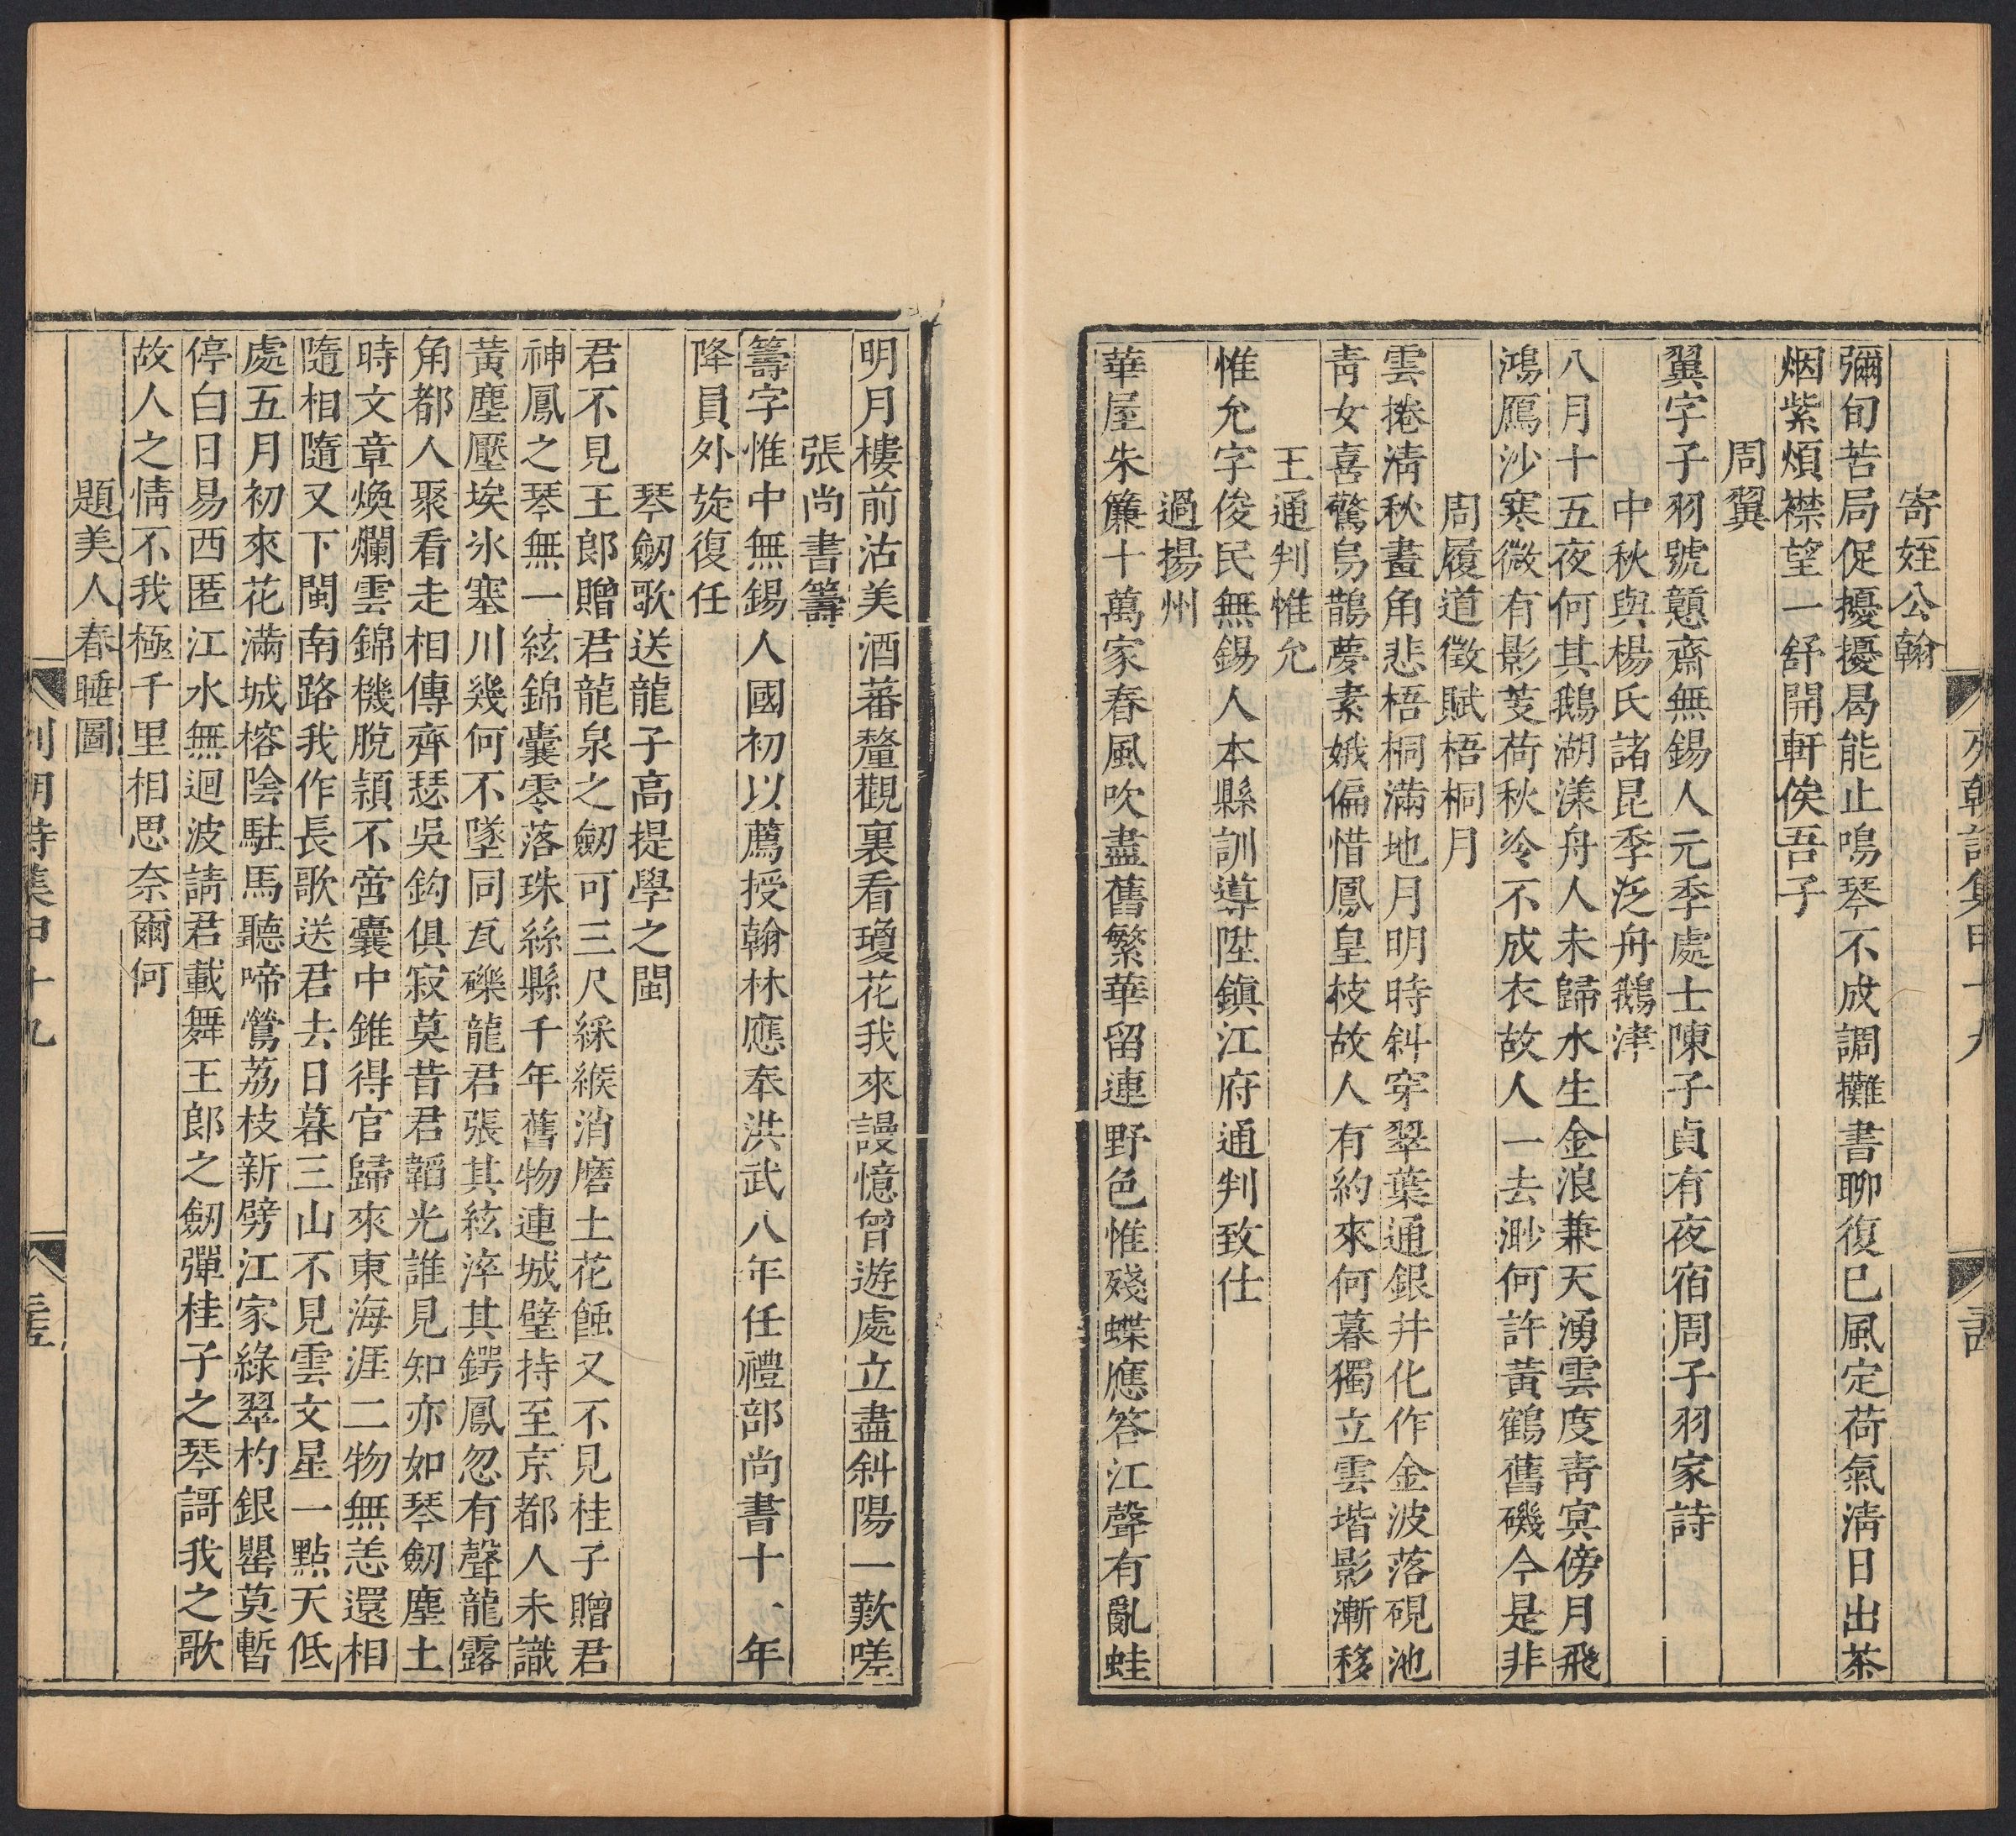 寄姪公翰
彌旬苦局促擾擾曷能止鳴琴不成調攤書聊復已風定荷氣清日出茶
烟紫煩襟望一舒開軒俟吾子
周翼
翼字子羽號戇齋無錫人元季處士陳子貞有夜宿周子羽家詩
中秋與楊氏諸昆季泛舟鵝津
八月十五夜何其鵝湖漾舟人未歸水生金浪兼天湧雲度青冥傍月飛
鴻鴈沙寒微有影芰荷秋冷不成衣故人一去渺何許黃鶴舊磯今是非
周履道徵賦梧桐月
雲捲清秋畫角悲梧桐滿地月明時斜穿翠葉通銀井化作金波落硯池
青女喜驚烏鵲夢素娥偏惜鳳皇枝故人有約來何暮獨立雲堦影漸移
王通判惟允
惟允字俊民無錫人本縣訓導陞鎮江府通判致仕
過揚州
華屋朱簾十萬家春風吹盡舊繁華留連野色惟殘蝶應答江聲有亂蛙
明月樓前沽美酒蕃釐觀裏看瓊花我來謾憶曾遊處立盡斜陽一歎嗟
張尚書籌
籌字惟中無錫人國初以薦授翰林應奉洪武八年任禮部尚書十一年
降員外旋復任
琴劒歌送龍子高提學之閩
君不見王郎贈君龍泉之劒可三尺綵緱消磨土花蝕又不見桂子贈君
神鳳之琴無一絃錦囊零落珠絲縣千年舊物連城璧持至京都人未識
黃塵壓埃氷塞川幾何不墜同瓦礫龍君張其絃淬其鍔鳳忽有聲龍露
角都人聚看走相傳齊瑟吳鈎俱寂莫昔君韜光誰見知亦如琴劒塵土
時文章煥爛雲錦機脫頴不啻囊中錐得官歸來東海涯二物無恙還相
隨相隨又下閩南路我作長歌送君去日暮三山不見雲文星一點天低
處五月初來花滿城榕陰駐馬聽啼鶯荔枝新劈江家綠翠杓銀罌莫暫
停白日易西匿江水無迴波請君載舞王郎之劒彈桂子之琴謌我之歌
故人之情不我極千里相思奈爾何
題美人春睡圖